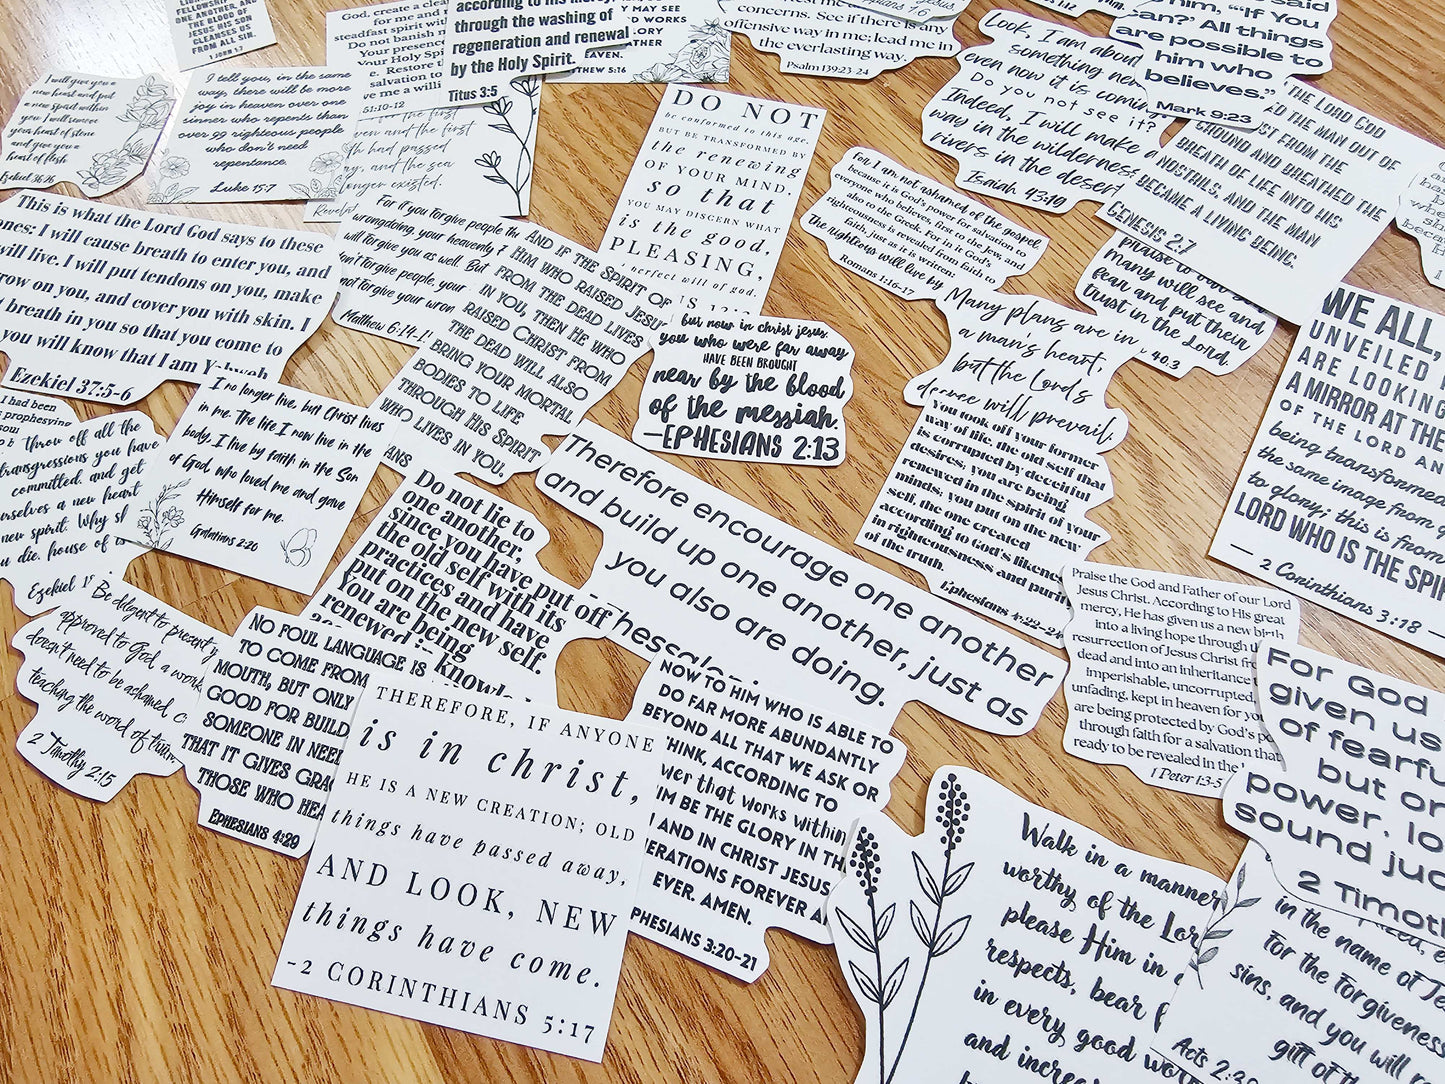 FELLOWSHIP WITH
ONE ANOTHER, AND
THE BLOOD OF
JESUS HIS SON
CLEANSES US
FROM ALL SIN.
1 JOHN 1:7
God, create a clean
for me and
steadfast spirit
Do not banish
Your presence,
Your Holy Spirit
Restore
salvation to
me a willi
51:10-12
according to his mercy,
through the washing of
regeneration and renewal
by the Holy Spirit.
Titus 3:5
MAY SEE
GOOD WORKS
GLORY
FATHER
HEAVEN.
MATTHEW 5:16
concerns. See if there is any
offensive way in me; lead me in
the everlasting way.
Psalm 139:23-24
said
him, "'If You
can?' All things
are possible to
him who
believes."
Mark 9:23
I will give you a
new heart and put
a new spirit within
you. I will remove
your heart of stone
and give you a
heart of flesh.
Ezekiel 36:26
I tell you, in the same
way, there will be more
joy in heaven over one
sinner who repents than
over 99 righteous people
who don't need
repentance.
Luke 15:7
heaven and the first
earth had passed
away, and the sea
no longer existed.
DO NOT
be conformed to this age,
BUT BE TRANSFORMED BY
the renewing
OF YOUR MIND,
so that
YOU MAY DISCERN WHAT
is the good,
PLEASING,
perfect will of god.
Look, I am about
something new
even now it is coming
Do you not see it?
Indeed, I will make a
way in the wilderness
rivers in the desert
Isaiah 43:19
THE LORD GOD
THE MAN OUT OF
FROM THE
GROUND AND BREATHED THE
BREATH OF LIFE INTO HIS
NOSTRILS, AND THE MAN
BECAME A LIVING BEING.
GENESIS 2:7
For I am not ashamed of the gospel,
because it is God's power for salvation to
everyone who believes, first to the Jew, and
also to the Greek. For in it God's
righteousness is revealed from faith to
faith, just as it is written:
The righteous will live by
Romans 1:16-17
praise to our God
Many will see and
fear and put their
trust in the Lord.
40:3
This is what the Lord God says to these
bones: I will cause breath to enter you, and
will live. I will put tendons on you, make
grow on you, and cover you with skin. I
breath in you so that you come to
you will know that I am Yahweh
Ezekiel 37:5-6
For if you forgive people th
wrongdoing, your heavenly
will forgive you as well. But
don't forgive people, your
not forgive your wron
Matthew 6:14-1
AND IF THE SPIRIT OF
HIM WHO RAISED JESUS
FROM THE DEAD LIVES
IN YOU, THEN HE WHO
RAISED CHRIST FROM
THE DEAD WILL ALSO
BRING YOUR MORTAL
BODIES TO LIFE
THROUGH HIS SPIRIT
WHO LIVES IN YOU.
ANS
but now in christ jesus,
you who were far away
HAVE BEEN BROUGHT
near by the blood
of the messiah.
—EPHESIANS 2:13
Many plans are in
a man's heart,
but the Lord's
decree will prevail.
WE ALL,
UNVEILED
ARE LOOKING
A MIRROR AT THE
OF THE LORD AN
being transformed
the same image from
to glory; this is from
LORD WHO IS THE SPIR
— 2 Corinthians 3:18 —
I had been
prophesying
Throw off all the
transgressions you have
committed, and get
yourselves a new heart
new spirit. Why sh
die, house of
Ezekiel 1
I no longer live, but Christ lives
in me. The life I now live in the
body, I live by faith in the Son
of God, who loved me and gave
Himself for me.
Galatians 2:20
Do not lie to
one another,
since you have put off
the old self with its
practices and have
put on the new self.
You are being
renewed in
knowledge
Therefore encourage one another
and build up one another, just as
you also are doing.
Thessalon
You took off your former
way of life, the old self that
is corrupted by deceitful
desires; you are being
renewed in the spirit of your
minds; you put on the new
self, the one created
according to God's likeness
in righteousness and purity
of the truth.
Ephesians 4:22-24
Be diligent to present y
approved to God, a work
doesn't need to be ashamed, c
teaching the word of truth.
2 Timothy 2:15
NO FOUL LANGUAGE IS
TO COME FROM
MOUTH, BUT ONLY
GOOD FOR BUILD
SOMEONE IN NEED
THAT IT GIVES GRAC
THOSE WHO HEA
EPHESIANS 4:29
THEREFORE, IF ANYONE
is in christ,
HE IS A NEW CREATION; OLD
things have passed away,
AND LOOK, NEW
things have come.
-2 CORINTHIANS 5:17
NOW TO HIM WHO IS ABLE TO
DO FAR MORE ABUNDANTLY
BEYOND ALL THAT WE ASK OR
THINK, ACCORDING TO
power that works within
HIM BE THE GLORY IN TH
AND IN CHRIST JESUS
GENERATIONS FOREVER A
EVER. AMEN.
EPHESIANS 3:20-21
Praise the God and Father of our Lord
Jesus Christ. According to His great
mercy, He has given us a new birth
into a living hope through th
resurrection of Jesus Christ fr
dead and into an inheritance
imperishable, uncorrupted
unfading, kept in heaven for you
are being protected by God's po
through faith for a salvation that
ready to be revealed in the
1 Peter 1:3-5
For God
given us
of fearfu
but on
power, lo
sound jud
2 Timoth
Walk in a manner
worthy of the Lor
please Him in
respects, bear f
in every good wor
and increa
in the name of Je
for the forgiveness
sins, and you will
gift of th
Acts 2:3